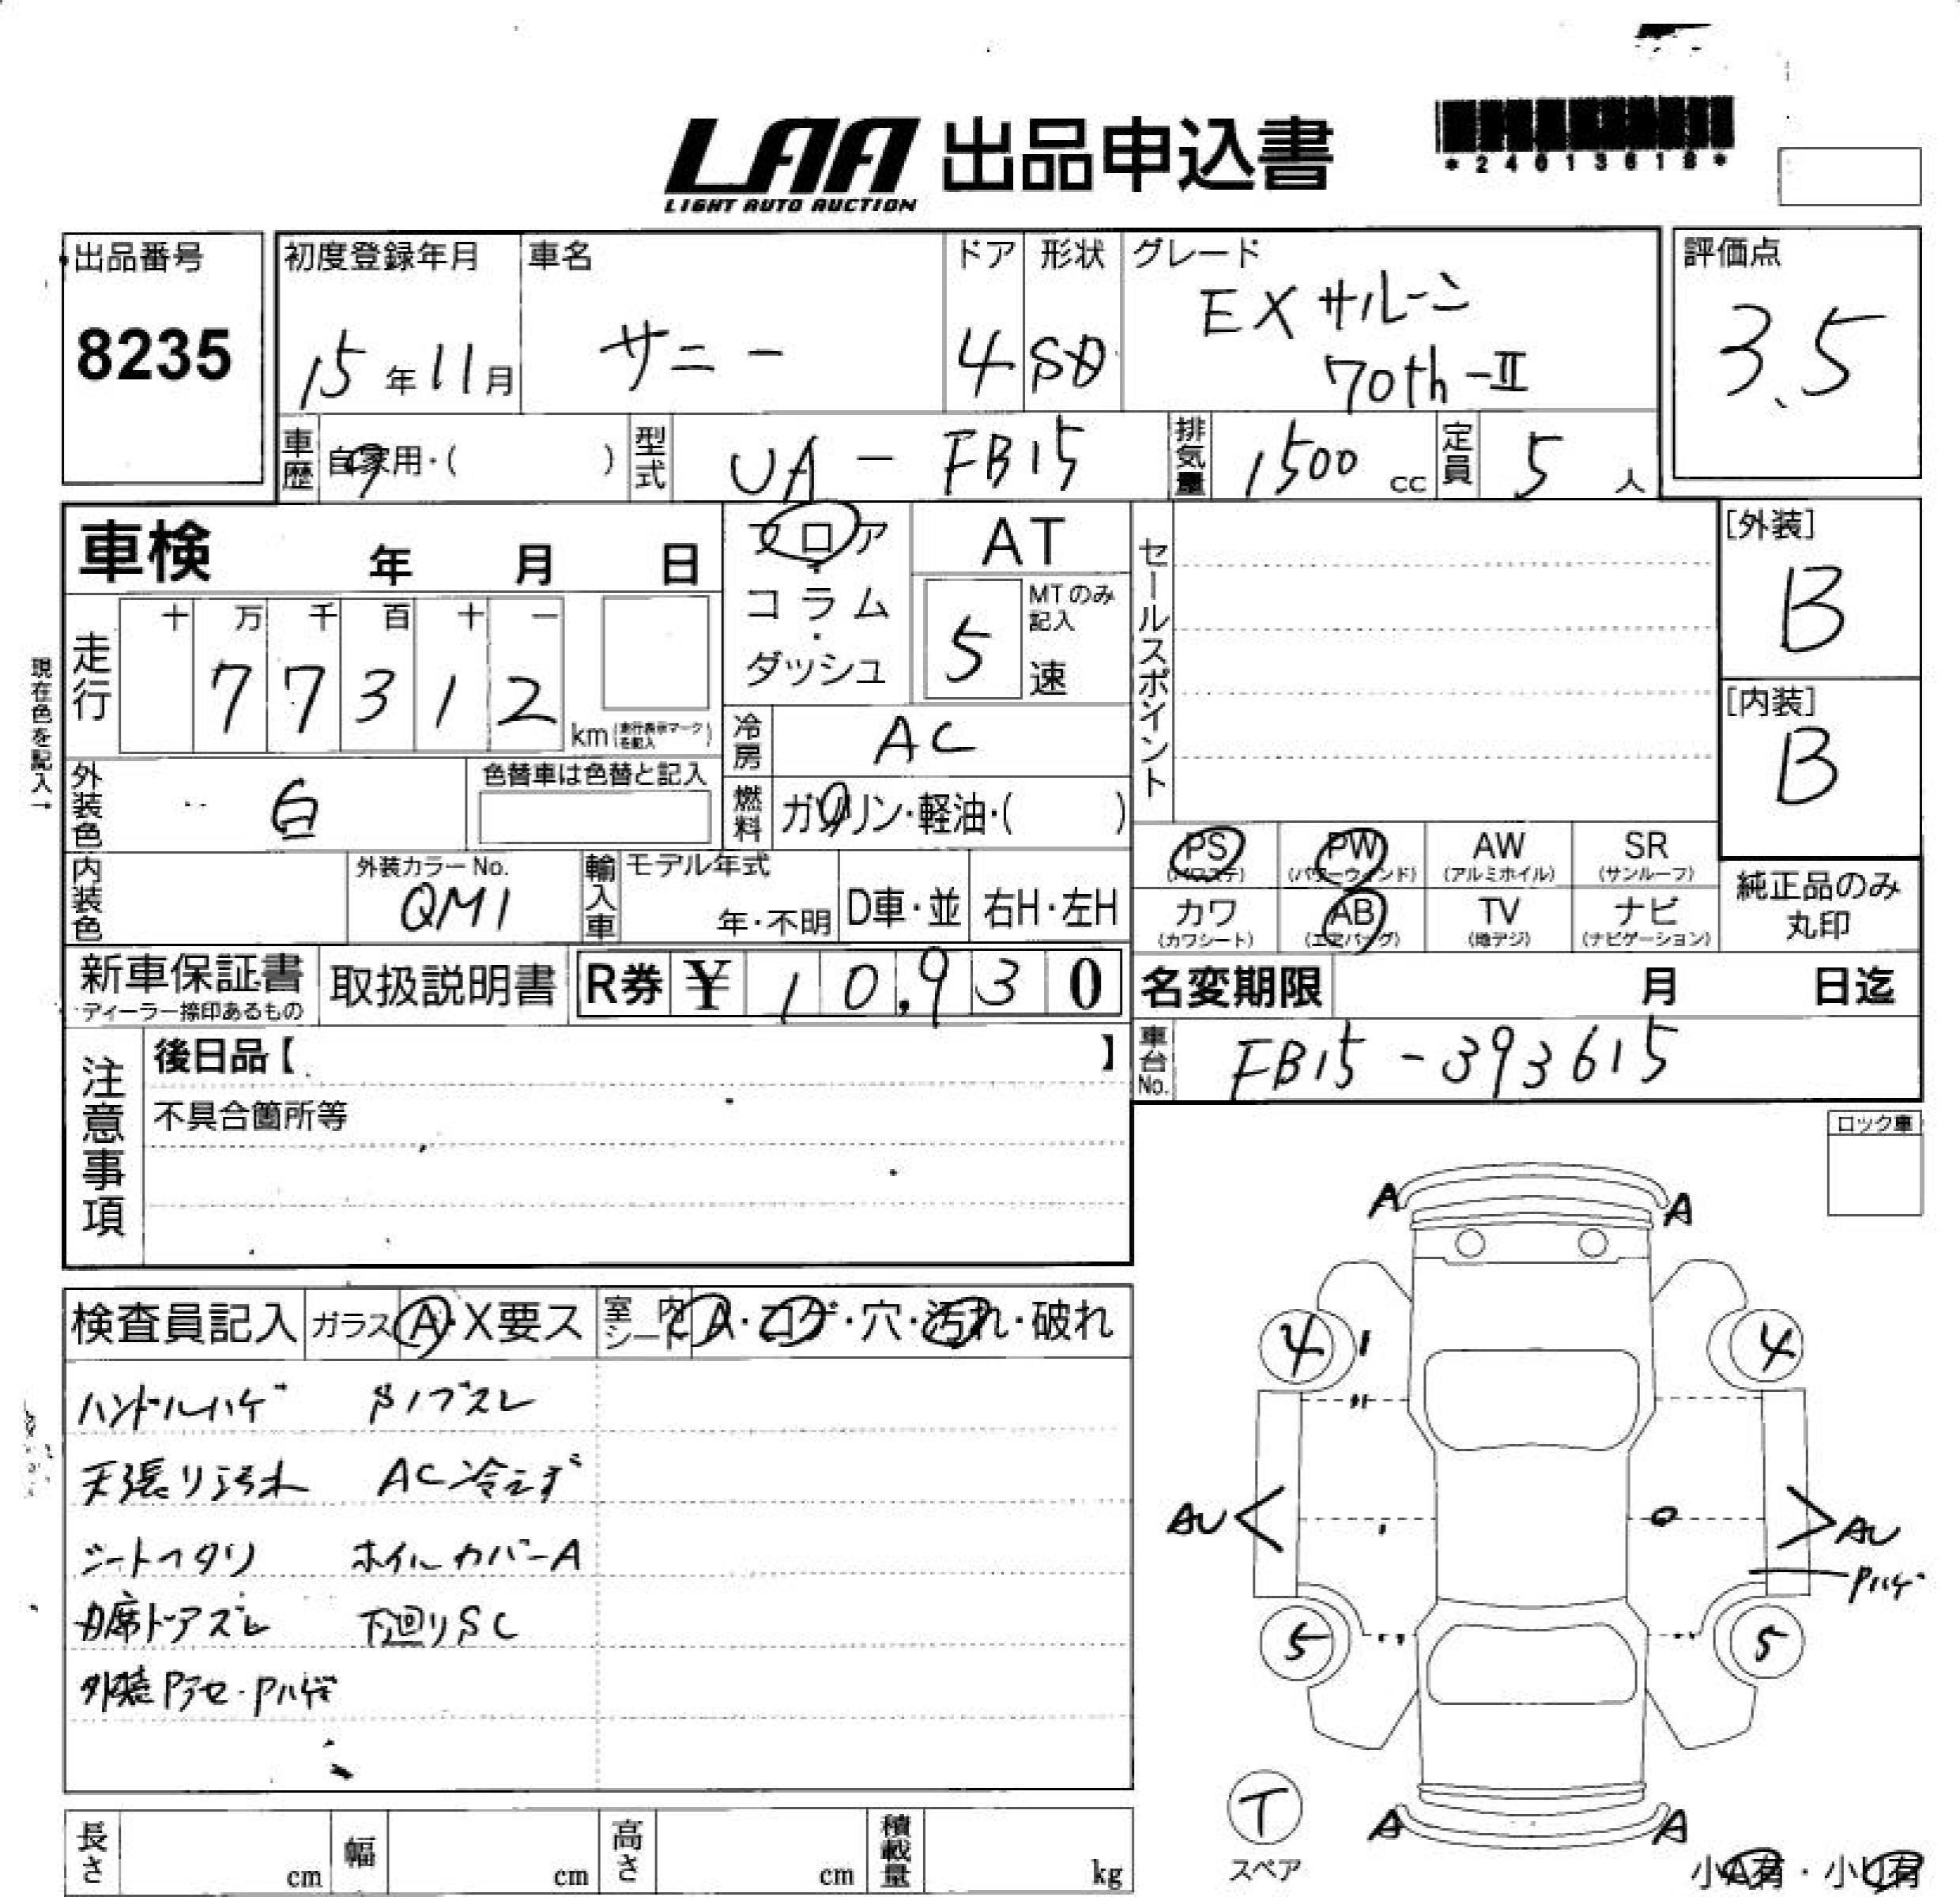 LAA 出品申込書
LIGHT AUTO AUCTION
*24013618*
出品番号
8235
初度登録年月
15年11月
車名
サニー
ドア
4
形状
SD
グレード
EXサルーン
70th-II
評価点
3.5
車歴
自家用・( )
型式
UA - FB15
排気量
1500 cc
定員
5 人
車検 年 月 日
フロア・コラム・ダッシュ
AT
MTのみ記入
5 速
セールスポイント
[外装]
B
[内装]
B
現在色を記入→
走行
十 万 千 百 十 一
7 7 3 1 2
km (走行表示マークを記入)
冷房
AC
外装色
白
色替車は色替と記入
燃料
ガソリン・軽油・( )
内装色
外装カラーNo.
QM1
輸入車
モデル年式
年・不明
D車・並
右H・左H
PS (パワステ)
PW (パワーウィンド)
AW (アルミホイル)
SR (サンルーフ)
カワ (カワシート)
AB (エアバッグ)
TV (地デジ)
ナビ (ナビゲーション)
純正品のみ
丸印
新車保証書
ディーラー捺印あるもの
取扱説明書
R券 ¥ 10,930
名変期限 月 日迄
車台No.
FB15-393615
注意事項
後日品【 】
不具合箇所等
ロック車
検査員記入
ガラス A・X要ス
室内シート A・コゲ・穴・汚れ・破れ
ハンドルハゲ Sノブスレ
天張り汚れ AC冷えず
シートヘタリ ホイルカバーA
D席ドアズレ 下廻りSC
外装Pアセ・Pハゲ
A A
4 4
AU AU
Pハゲ
5 5
T
スペア
A A
小A有・小U有
長さ cm
幅 cm
高さ cm
積載量 kg